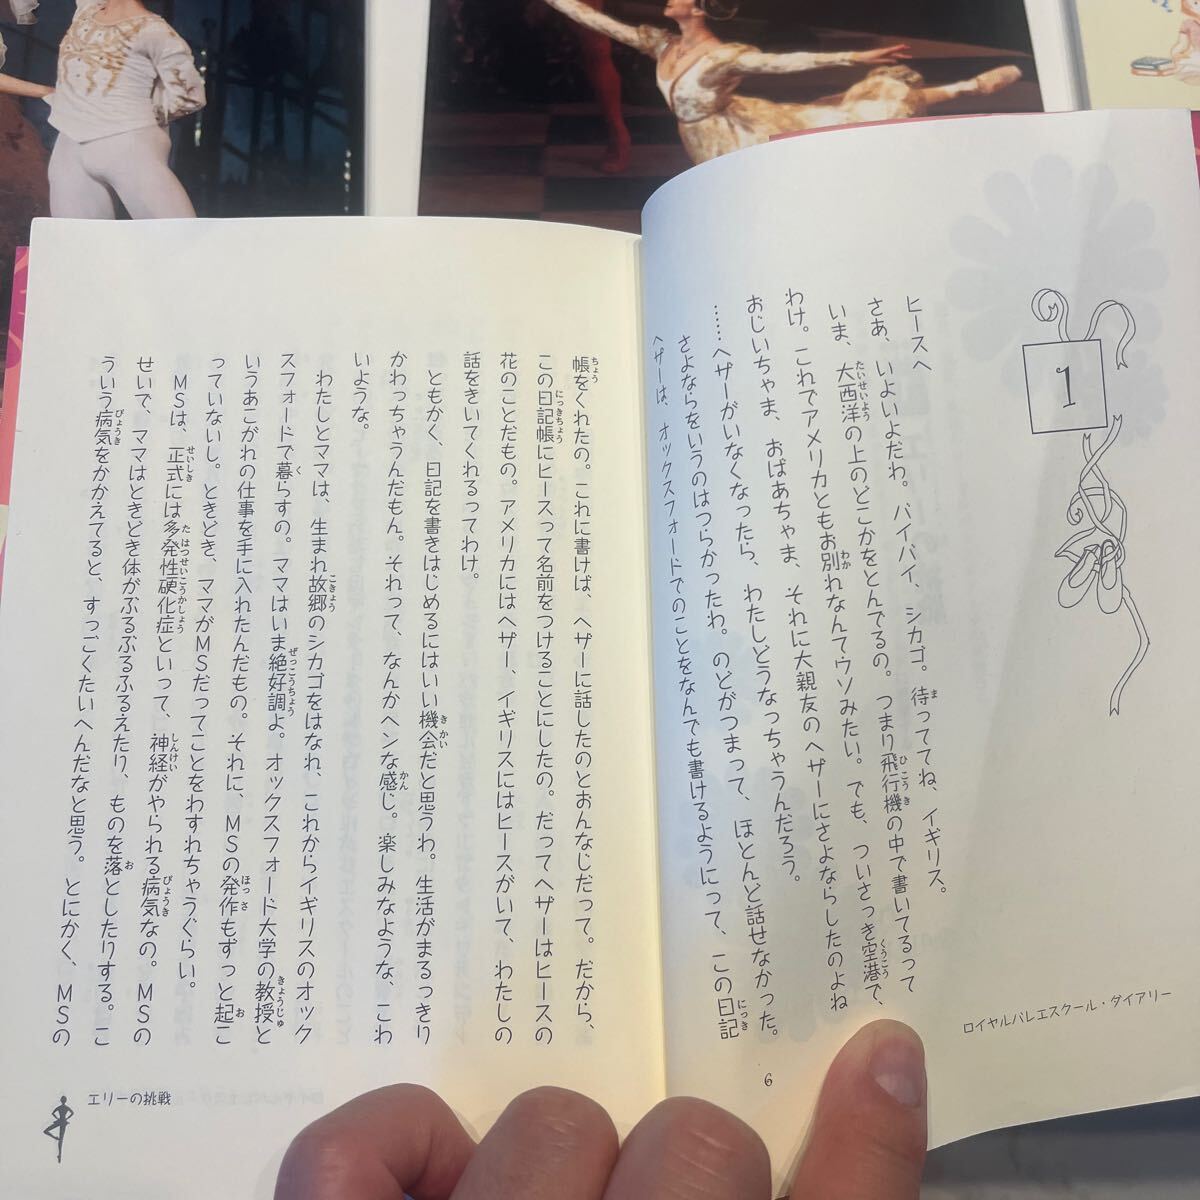 1
ヒースへ
さあ、いよいよだわ。バイバイ、シカゴ。待っててね、イギリス。
いま、大西洋の上のどこかをとんでるの。つまり飛行機の中で書いてるって
わけ。これでアメリカともお別れなんてウソみたい。でも、ついさっき空港で、
おじいちゃま、おばあちゃま、それに大親友のヘザーにさよならしたのよね
……ヘザーがいなくなったら、わたしどうなっちゃうんだろう。
さよならをいうのはつらかったわ。のどがつまって、ほとんど話せなかった。
ヘザーは、オックスフォードでのことをなんでも書けるようにって、この日記
ロイヤルバレエスクール・ダイアリー
6
帳をくれたの。これに書けば、ヘザーに話したのとおんなじだって。だから、
この日記帳にヒースって名前をつけることにしたの。だってヘザーはヒースの
花のことだもの。アメリカにはヘザー、イギリスにはヒースがいて、わたしの
話をきいてくれるってわけ。
ともかく、日記を書きはじめるにはいい機会だと思うわ。生活がまるっきり
かわっちゃうんだもん。それって、なんかヘンな感じ。楽しみなような、こわ
いような。
わたしとママは、生まれ故郷のシカゴをはなれ、これからイギリスのオック
スフォードで暮らすの。ママはいま絶好調よ。オックスフォード大学の教授と
いうあこがれの仕事を手に入れたんだもの。それに、MSの発作もずっと起こ
っていないし。ときどき、ママがMSだってことをわすれちゃうぐらい。
MSは、正式には多発性硬化症といって、神経がやられる病気なの。MSの
せいで、ママはときどき体がぶるぶるふるえたり、ものを落としたりする。こ
ういう病気をかかえてると、すっごくたいへんだなと思う。とにかく、MSの
エリーの挑戦